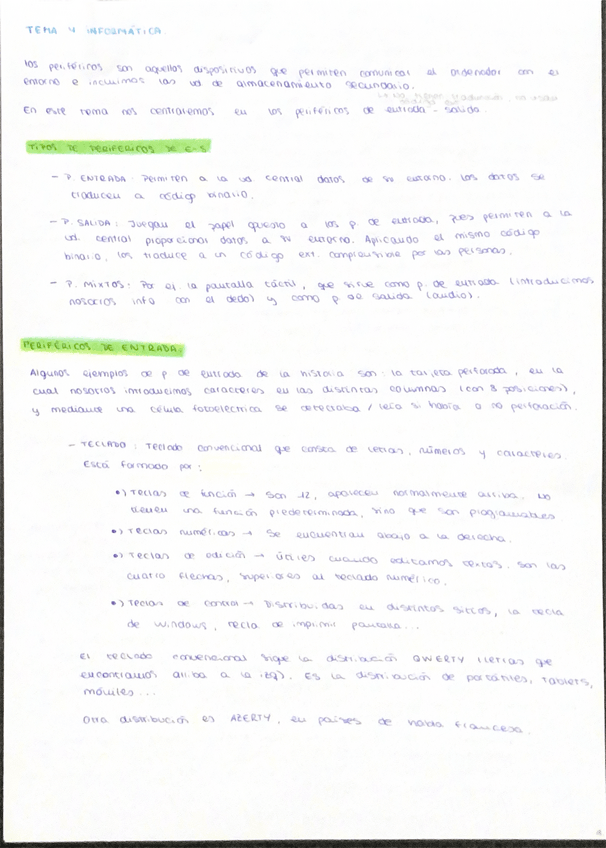 TEMA 4 INFORMÁTICA.
Los periféricos son aquellos dispositivos que permiten comunicar al ordenador con el
entorno e incluimos las ud de almacenamiento secundario.
En este tema nos centraremos en los periféricos de entrada - salida.
TIPOS DE PERIFERICOS DE E-S
- P. ENTRADA: Permiten a la ud central datos de su entorno. Los datos se
traducen a código binario.
- P. SALIDA: Juegan el papel opuesto a los p de entrada, pues permiten a la
ud. central proporcionar datos a su entorno. Aplicando el mismo código
binario, los traduce a un código ext. comprensible por las personas.
- P. MIXTOS: Por ej. la pantalla táctil, que sirve como p. de entrada (introducimos
nosotros info con el dedo) y como p de salida (audio).
PERIFÉRICOS DE ENTRADA.
Algunos ejemplos de p de entrada de la historia son: la tarjeta perforada, en la
cual nosotros introducimos caracteres en las distintas columnas (con 8 posiciones),
y mediante una célula fotoeléctrica se detectaba / leía si había o no perforación.
- TECLADO: Teclado convencional que consta de letras, números y caracteres.
Está formado por:
•) Teclas de función → Son 12, aparecen normalmente arriba. No
tienen una función predeterminada, sino que son programables
•) Teclas numéricas → Se encuentran abajo a la derecha.
•) Teclas de edición → Útiles cuando editamos textos. Son las
cuatro flechas, superiores al teclado numérico.
•) Teclas de control → Distribuidas en distintos sitios, la tecla
de Windows, tecla de imprimir pantalla...
El teclado convencional sigue la distribución QWERTY (letras que
encontramos arriba a la izq). Es la distribución de portátiles, tablets,
móviles...
Otra distribución es AZERTY, en países de habla francesa.